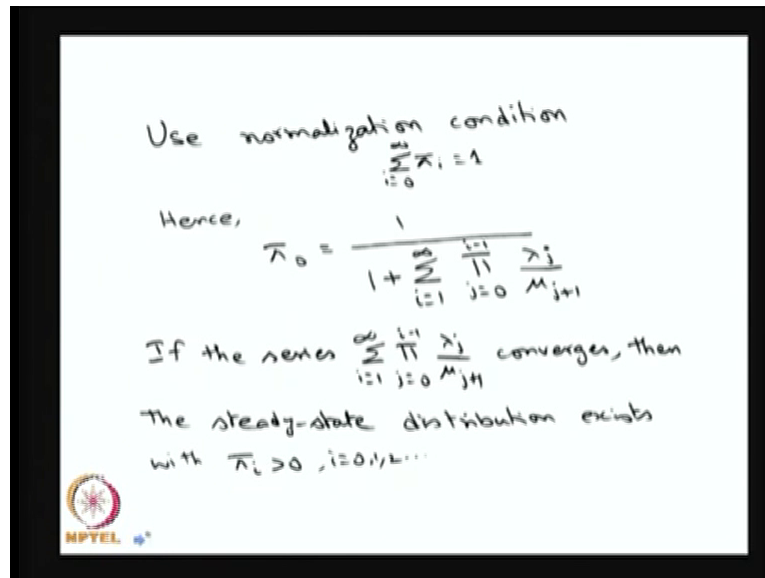 Use normalization condition
∞
Σ πᵢ = 1
i=0
Hence,
π₀ = 1 / (1 + Σ_{i=1}^{∞} ∏_{j=0}^{i-1} λⱼ/μⱼ₊₁)
If the series Σ_{i=1}^{∞} ∏_{j=0}^{i-1} λⱼ/μⱼ₊₁ converges, then
the steady-state distribution exists
with πᵢ > 0, i=0,1,2...
NPTEL